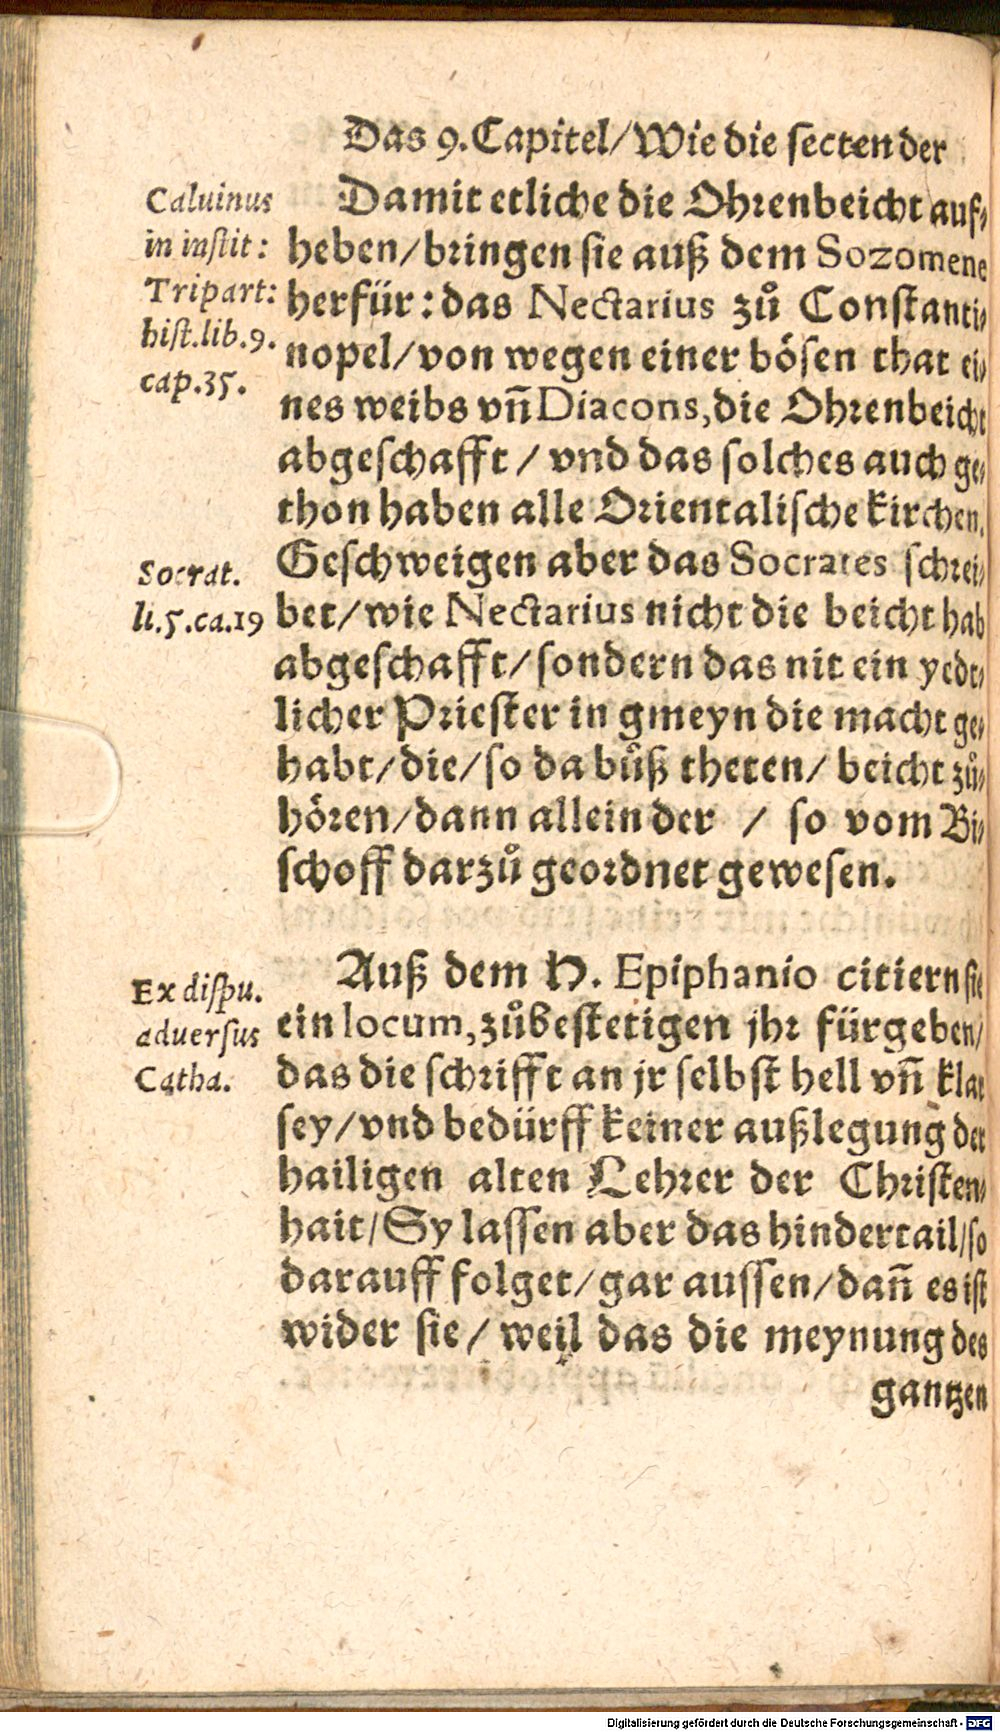 Das 9. Capitel/ Wie die secten der
Caluinus
in instit:
Tripart:
hist.lib.9.
cap.35.
Damit etliche die Ohrenbeicht auf⸗
heben/ bringen sie auß dem Sozomene
herfür: das Nectarius zů Constanti⸗
nopel/ von wegen einer bösen that ei⸗
nes weibs vñ Diacons, die Ohrenbeicht
abgeschafft / vnd das solches auch ge⸗
thon haben alle Orientalische kirchen.
Socrat.
li.5.ca.19
Geschweigen aber das Socrates schrei⸗
bet/ wie Nectarius nicht die beicht hab
abgeschafft/ sondern das nit ein yedt⸗
licher Priester in gmeyn die macht ge⸗
habt/ die/ so da bůß theten/ beicht zů⸗
hören/ dann allein der / so vom Bi⸗
schoff darzů geordnet gewesen.
Ex dispu.
aduersus
Catha.
Auß dem H. Epiphanio citiern sie
ein locum, zůbestetigen jhr fürgeben/
das die schrifft an jr selbst hell vñ klar
sey/ vnd bedürff keiner außlegung der
hailigen alten Lehrer der Christen⸗
hait/ Sy lassen aber das hindertail/ so
darauff folget/ gar aussen/ dañ es ist
wider sie/ weil das die meynung des
gantzen
Digitalisierung gefördert durch die Deutsche Forschungsgemeinschaft - DFG